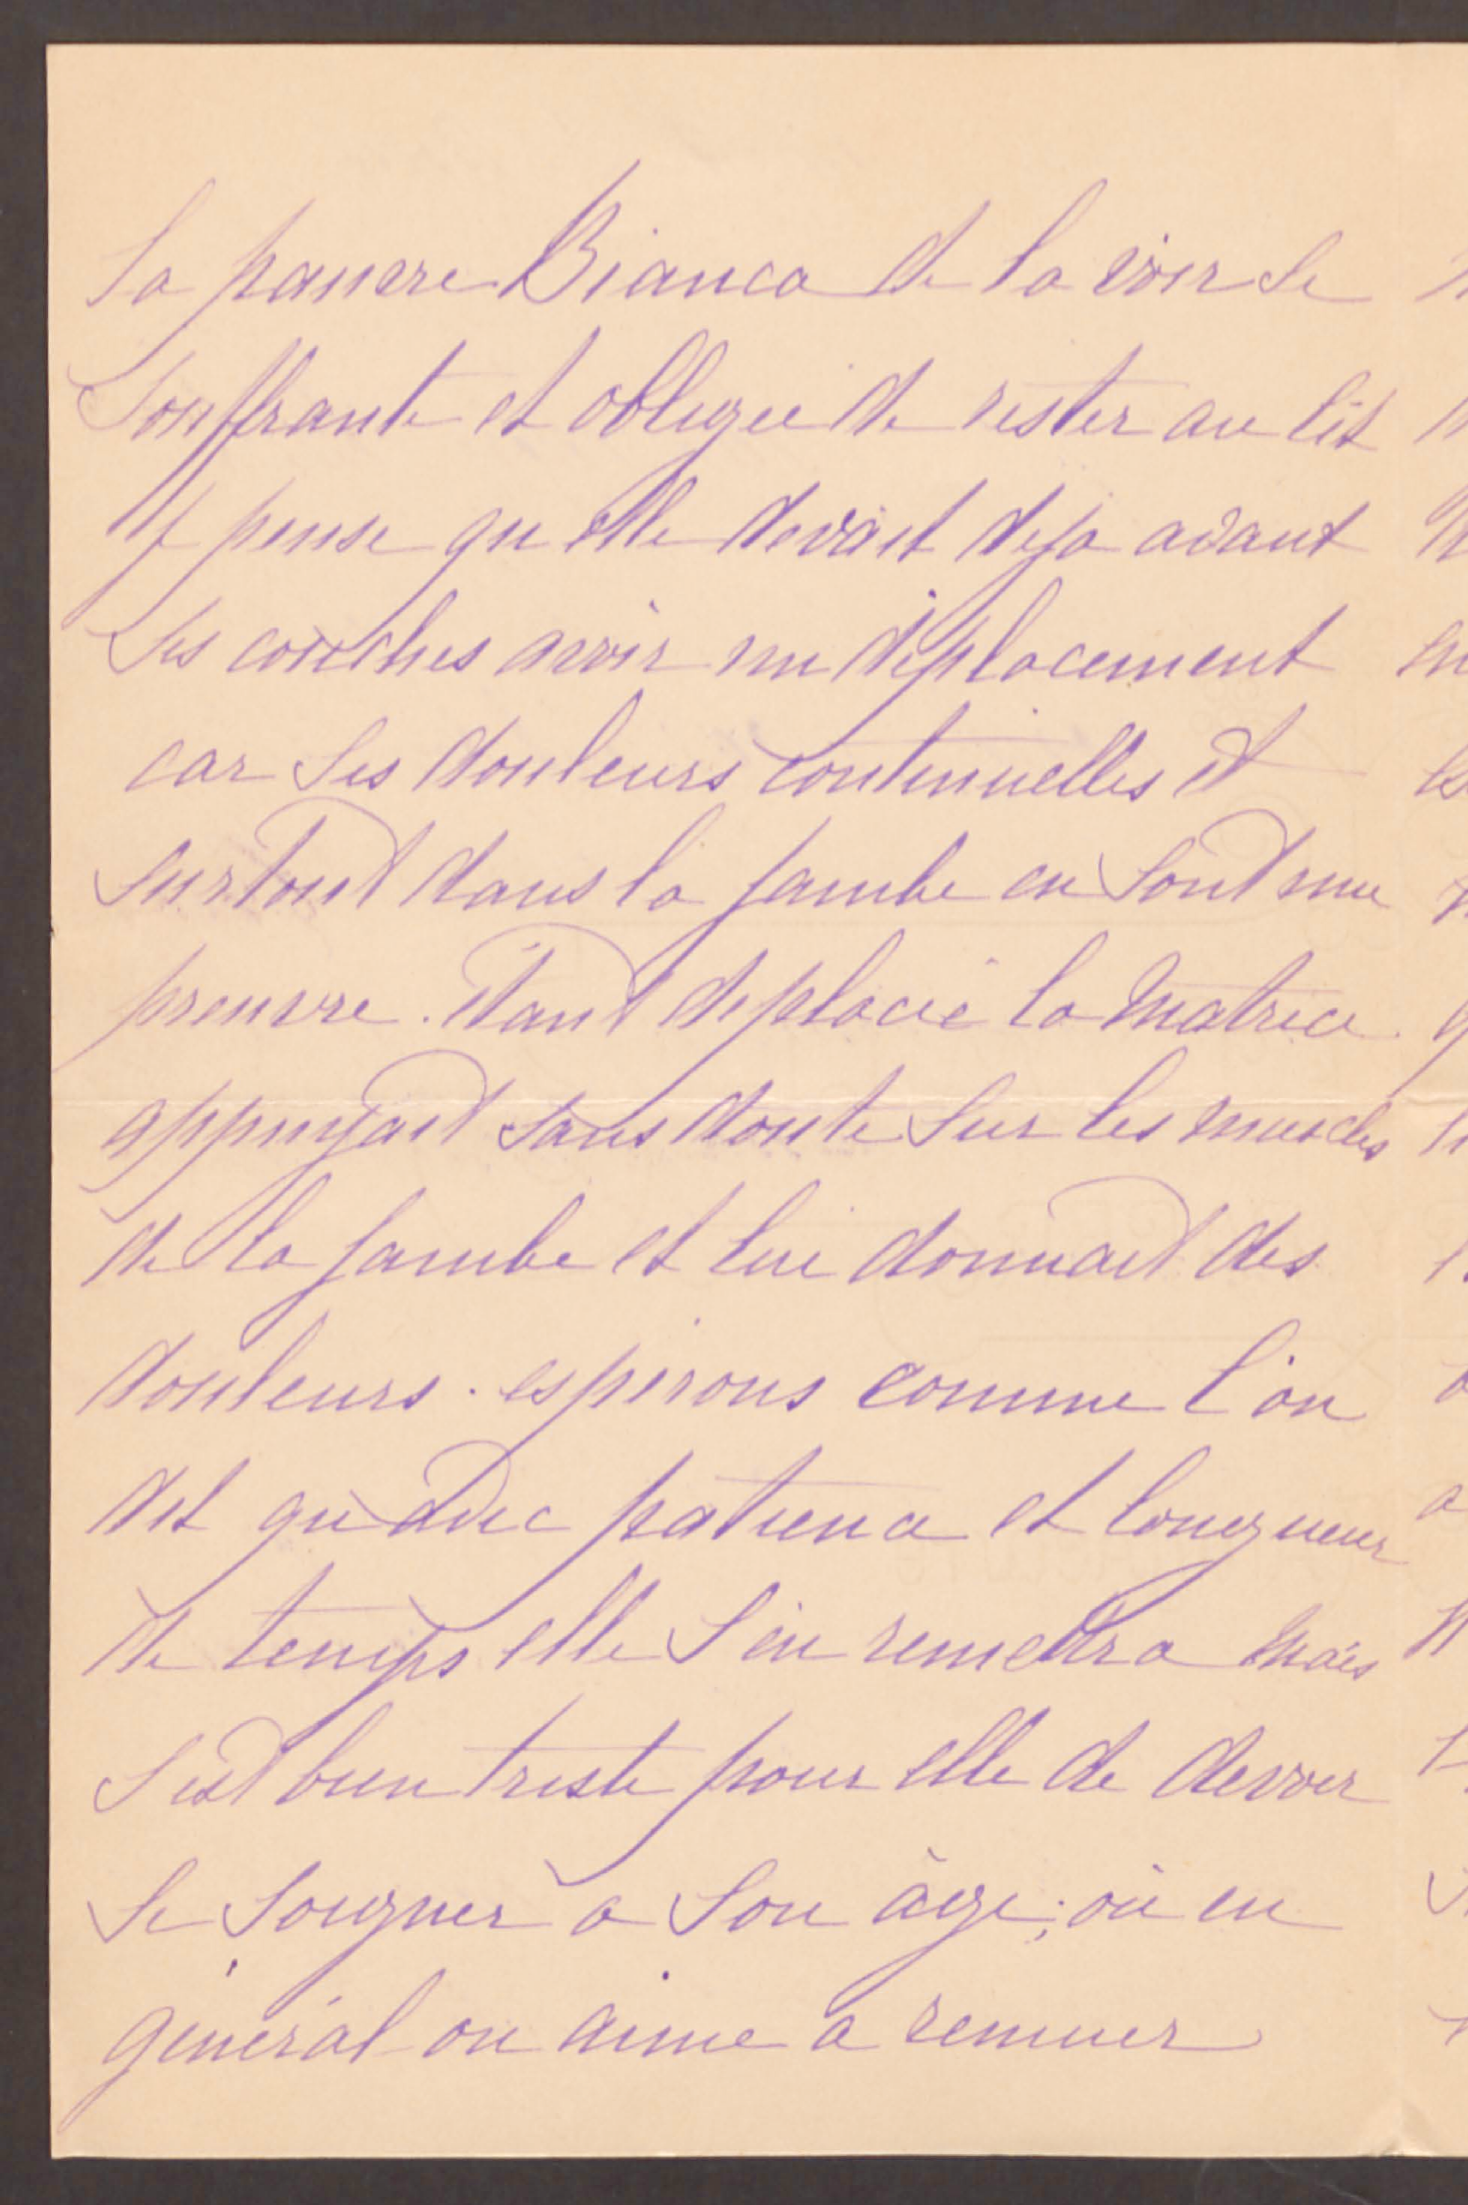 la pauvre Bianca de la voir se
souffrante et obligée de rester au lit
Je pense qu'elle devait déjà avant
ses couches avoir un déplacement
car ses douleurs continuelles et
surtout dans la jambe en sont une
preuvre. étant deplacée la matrice
appuyait sans doute sur les muscles
de la jambe et lui donnait des
douleurs. espérons comme l'on
dit qu'avec patience et longueur
de temps elle s'en remettra mais
s'est bien triste pour elle de devoir
se soigner a son âge; où en
général on aime a remuer